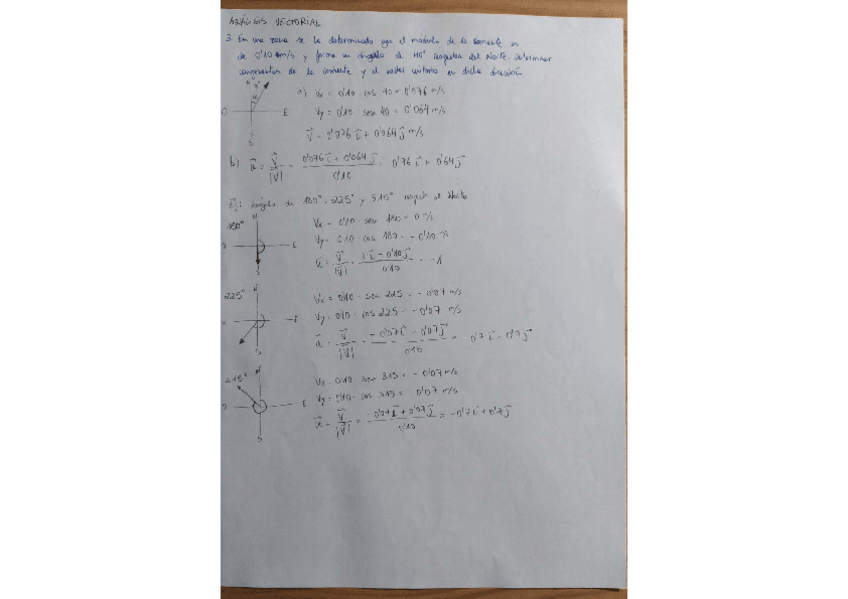 ANÁLISIS VECTORIAL
3. En una zona se ha determinado que el módulo de la corriente es
de 0'10 m/s y forma un ángulo de 40° respecto del Norte. Determinar
componentes de la corriente y el vector unitario en dicha dirección.
N
a) Vx = 0'10 · cos 40 = 0'076 m/s
O E
Vy = 0'10 · sen 40 = 0'064 m/s
S
V = 0'076 i + 0'064 j m/s
b) u = V/|V| = 0'076 i + 0'064 j / 0'10 = 0'76 i + 0'64 j
Ej: Ángulos de 180°, 225° y 315° respecto al Norte
180°
N
Vx = 0'10 · sen 180 = 0 m/s
E
Vy = 0'10 · cos 180 = - 0'10 m/s
S
u = V/|V| = i - 0'10 j / 0'10 = - 1
225°
N
Vx = 0'10 · sen 225 = - 0'07 m/s
E
Vy = 0'10 · cos 225 = - 0'07 m/s
S
u = V/|V| = - 0'07 i - 0'07 j / 0'10 = - 0'7 i - 0'7 j
315°
N
Vx = 0'10 · sen 315 = - 0'07 m/s
O E
Vy = 0'10 · cos 315 = 0'07 m/s
S
u = V/|V| = - 0'07 i + 0'07 j / 0'10 = - 0'7 i + 0'7 j